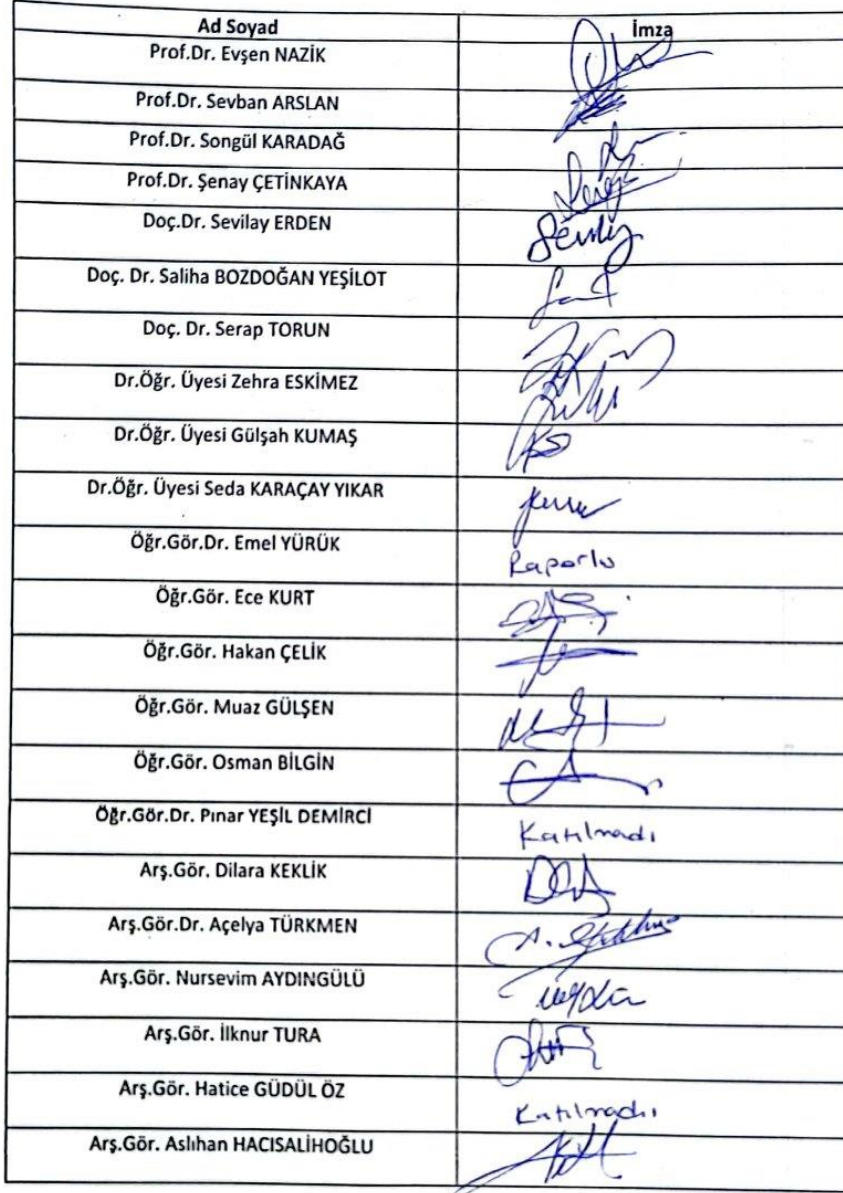 Ad Soyad İmza
Prof.Dr. Evşen NAZİK
Prof.Dr. Sevban ARSLAN
Prof.Dr. Songül KARADAĞ
Prof.Dr. Şenay ÇETİNKAYA
Doç.Dr. Sevilay ERDEN
Doç. Dr. Saliha BOZDOĞAN YEŞİLOT
Doç. Dr. Serap TORUN
Dr.Öğr. Üyesi Zehra ESKİMEZ
Dr.Öğr. Üyesi Gülşah KUMAŞ
Dr.Öğr. Üyesi Seda KARAÇAY YIKAR
Öğr.Gör.Dr. Emel YÜRÜK Raporlu
Öğr.Gör. Ece KURT
Öğr.Gör. Hakan ÇELİK
Öğr.Gör. Muaz GÜLŞEN
Öğr.Gör. Osman BİLGİN
Öğr.Gör.Dr. Pınar YEŞİL DEMİRCİ Katılmadı
Arş.Gör. Dilara KEKLİK
Arş.Gör.Dr. Açelya TÜRKMEN
Arş.Gör. Nursevim AYDINGÜLÜ
Arş.Gör. İlknur TURA
Arş.Gör. Hatice GÜDÜL ÖZ Katılmadı
Arş.Gör. Aslıhan HACISALİHOĞLU